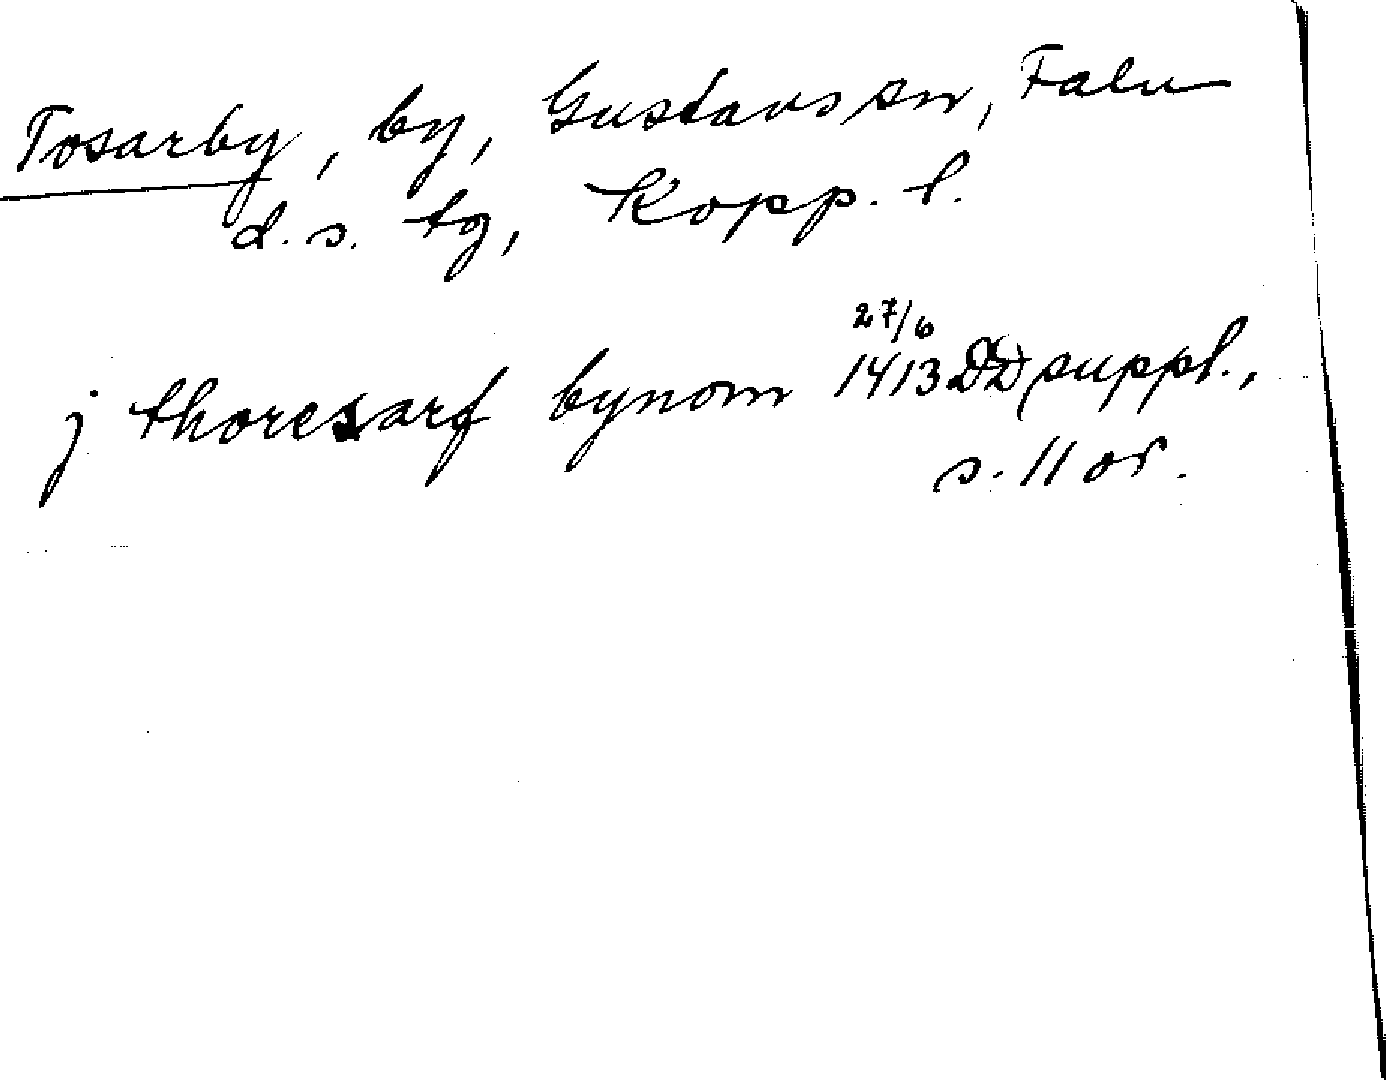 Tosarby, by, Gustavs sn, Falu
d. s. tg, Kopp. l.
27/6
j thoresarf bynom 1413 DD suppl.,
s. 11 or.